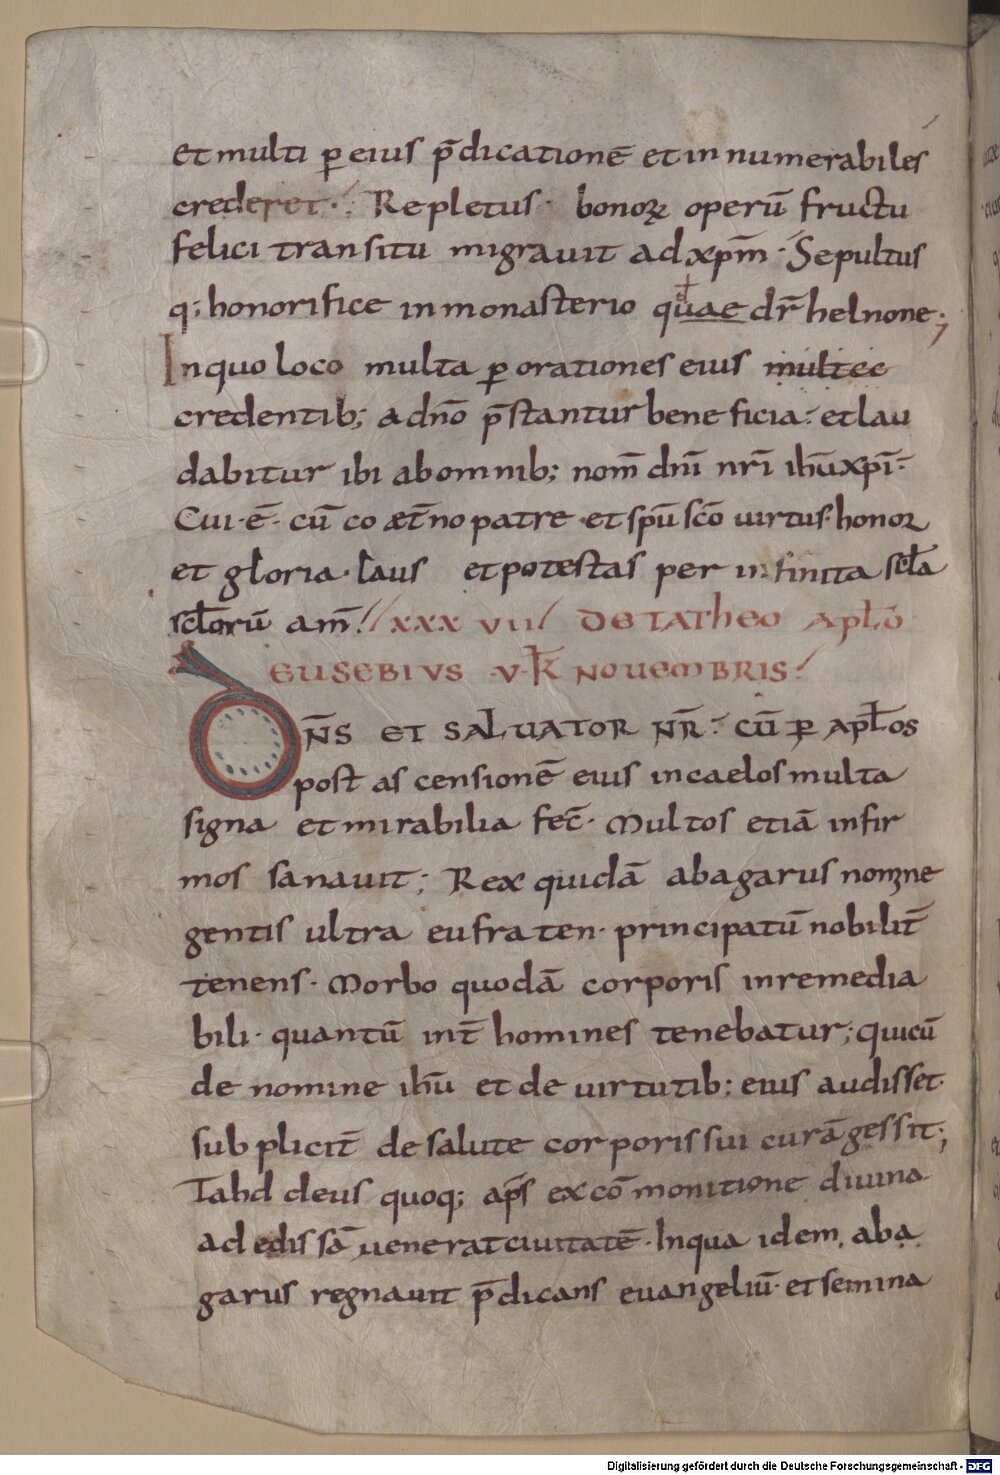 et multi ꝑ eius p̄dicationē et innumerabiles
crederet · Repletus · bonoꝝ operū fructu
felici transitu migrauit ad xpm̄ · Sepultus
q; honorifice in monasterio quae dr̄ helnone;
In quo loco multa ꝑ orationes eius multae
credentib; a dn̄o p̄stantur beneficia · et lau
dabitur ibi ab omnib; nom̄ dn̄i nr̄i ihū xpī ·
Cui · ē · cū coæt̄no patre · et spū sc̄o uirtus · honor
et gloria · laus et potestas per infinita scła
scłorū am̄ ! XXXVII DE TATHEO APŁO
EUSEBIVS · V · K̄ NOUEMBRIS !
DN̄S ET SALUATOR NR̄ · CŪ Ꝑ APŁOS
post ascensionē eius in caelos multa
signa et mirabilia fec̄ · Multos etiā infir
mos sanauit; Rex quidā abagarus nomne
gentis ultra eufraten · principatū nobilit̄
tenens · Morbo quodā corporis inremedia
bili · quantū int̄ homines tenebatur; qui cū
de nomine ihū et de uirtutib; eius audisset
subplicit̄ de salute corporis sui curā gessit;
Tahddeus quoq; ap̄s ex cōmonitione diuina
ad edissā uenerat ciuitatē · In qua idem aba
garus regnauit p̄dicans euangeliū · et semina
Digitalisierung gefördert durch die Deutsche Forschungsgemeinschaft - DFG